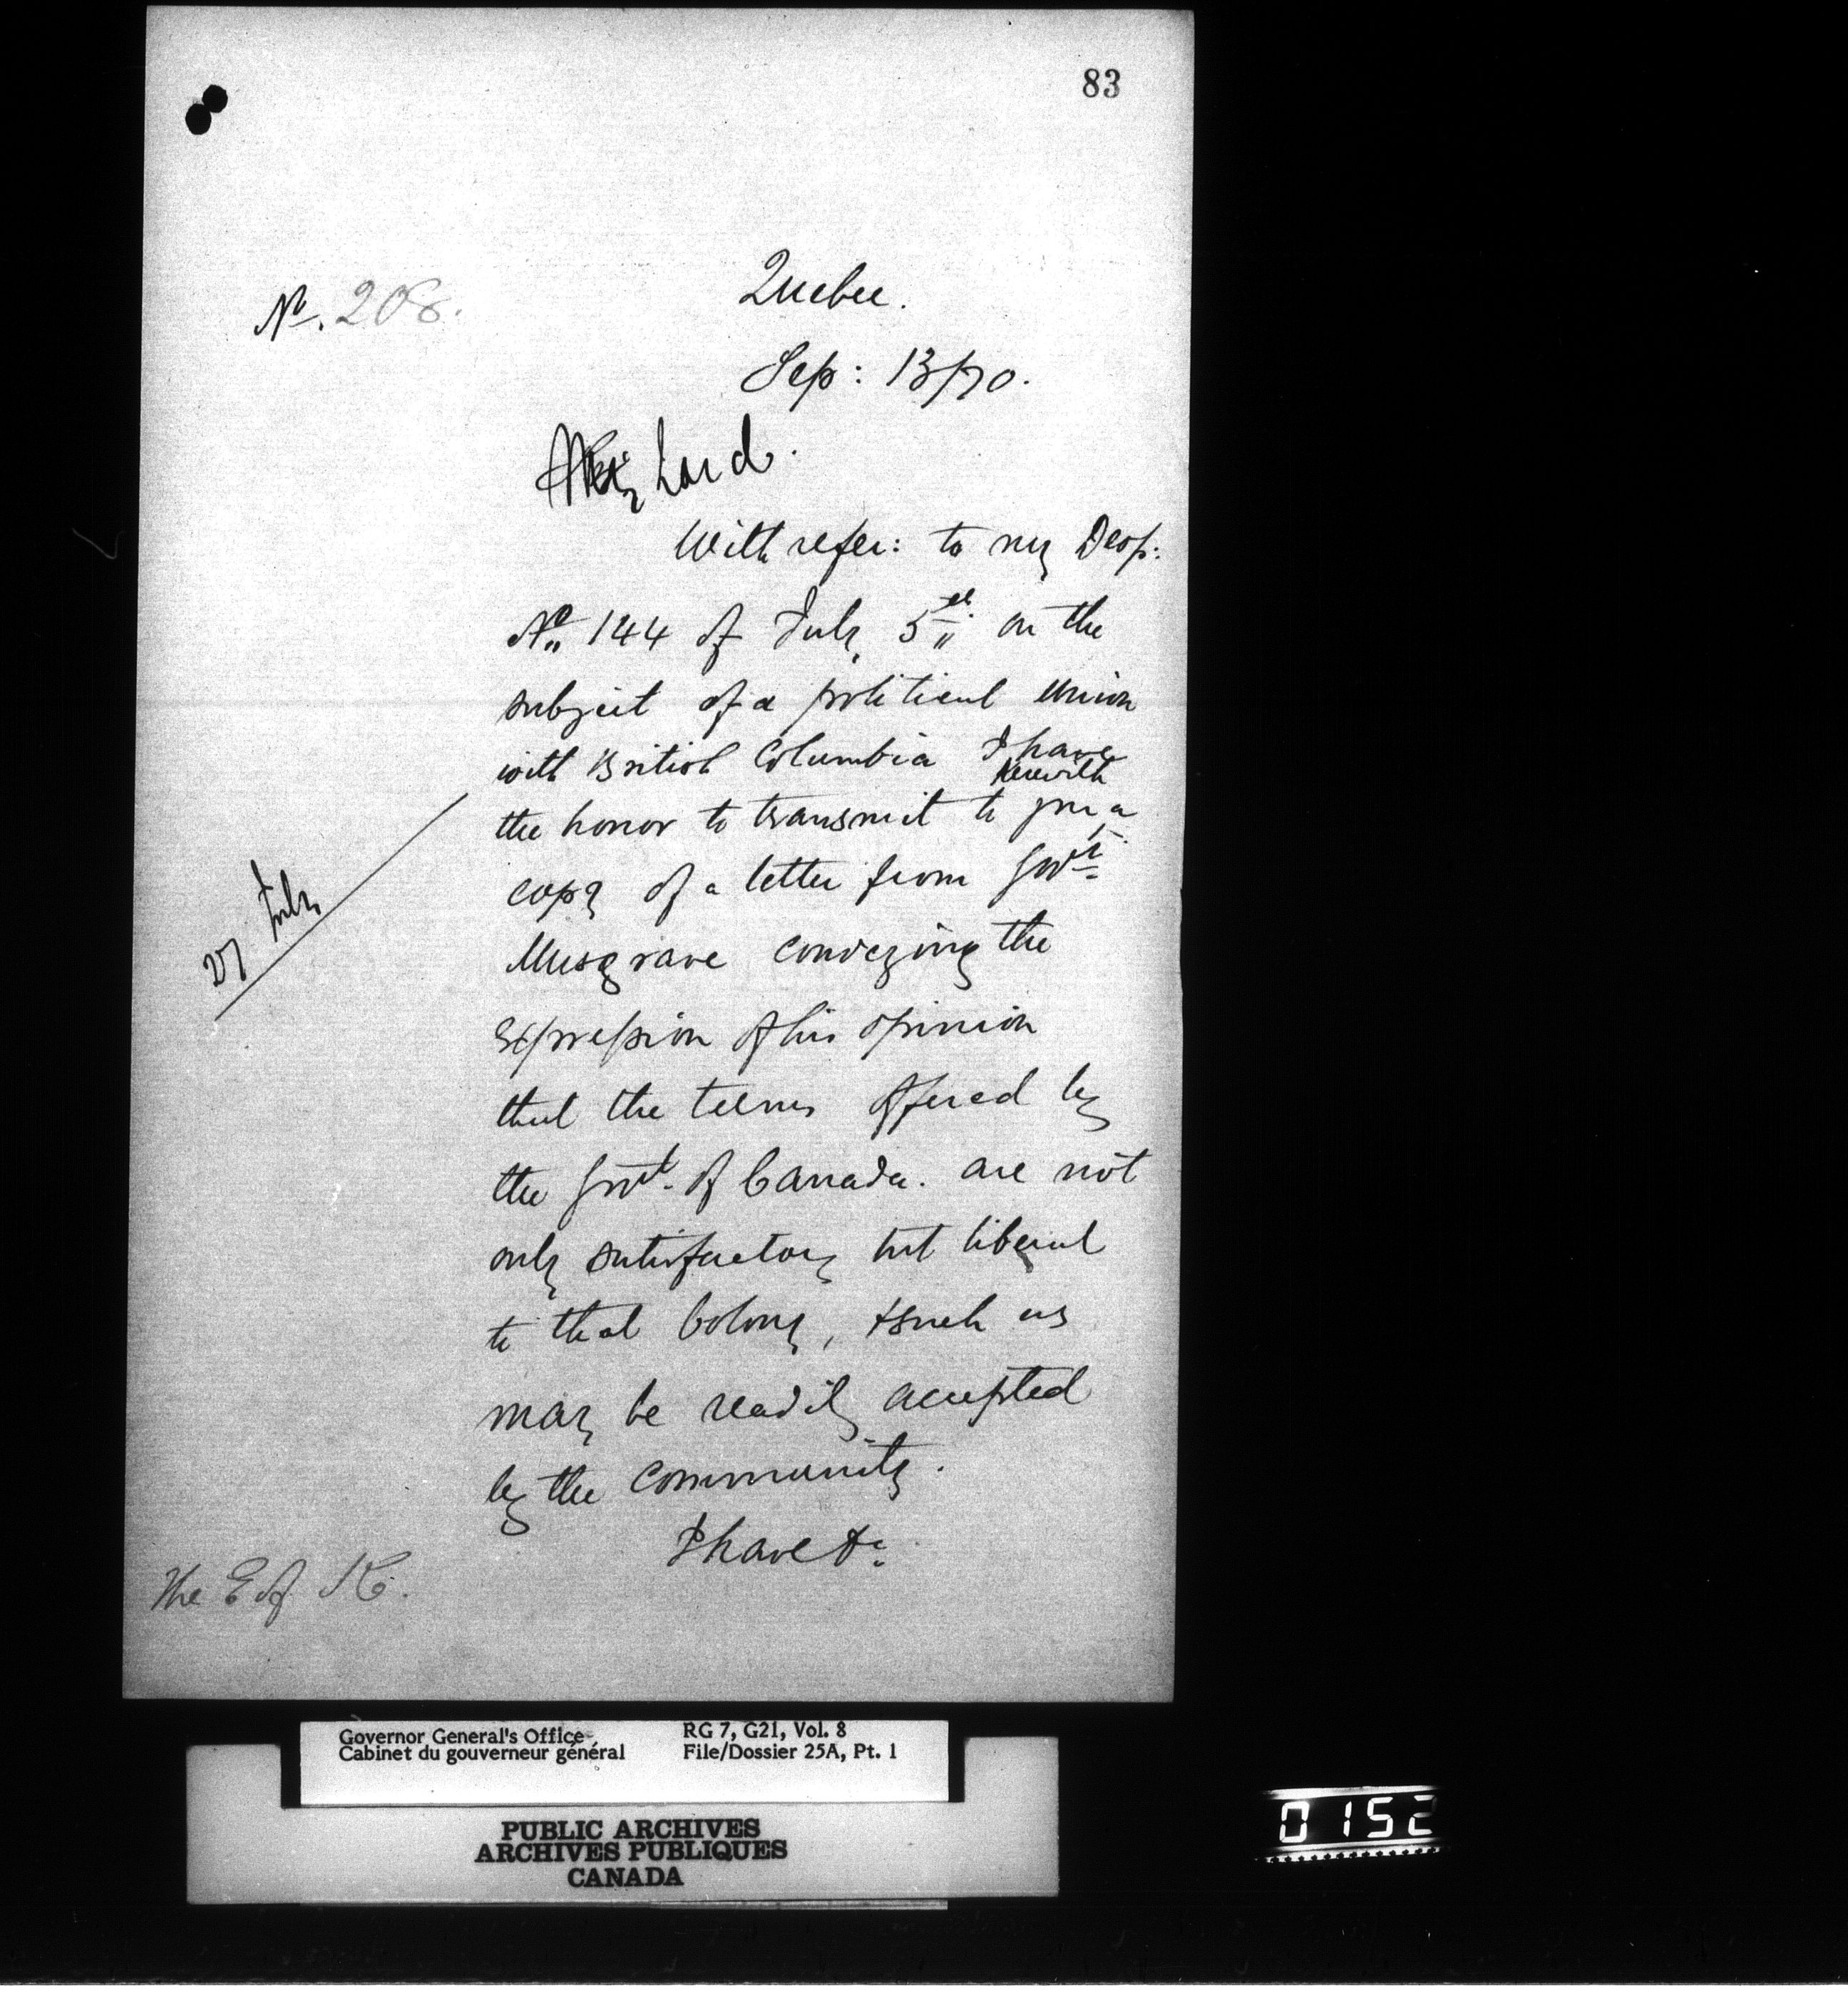 83
No. 208.
Quebec.
Sep: 13/70.
My Lord.
With refer: to my Desp:
No. 144 of July 5th on the
subject of a political union
with British Columbia I have
herewith
the honor to transmit to you a
copy of a letter from Govr.
27 July
Musgrave conveying the
expression of his opinion
that the terms offered by
the Govt. of Canada. are not
only satisfactory but liberal
to that Colony, & such as
may be readily accepted
by the community.
I have &c
The E of K.
Governor General's Office RG 7, G21, Vol. 8
Cabinet du gouverneur général File/Dossier 25A, Pt. 1
PUBLIC ARCHIVES
ARCHIVES PUBLIQUES
CANADA
0152